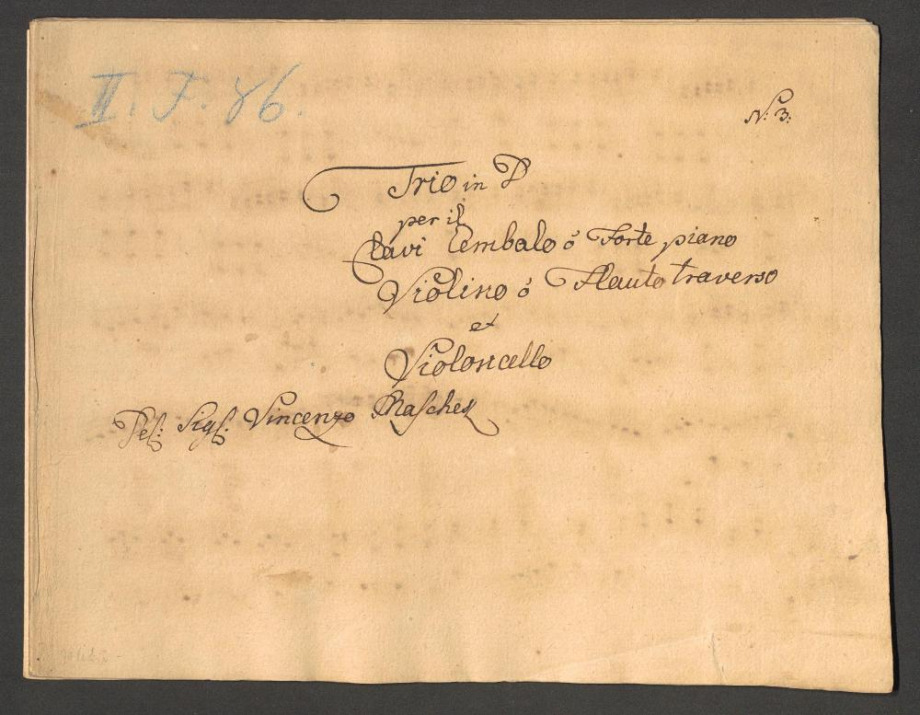 II. F. 86.
N: 3:
Trio in D
per il
Clavi Cembalo ó Forte piano
Violino ó Flauto traverso
et
Violoncello
Del: Sigl: Vincenzo Maschek